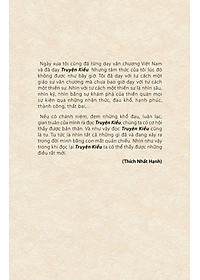 Ngày xưa tôi cũng đã từng dạy văn chương Việt Nam
và đã dạy Truyện Kiều. Nhưng tâm thức của tôi lúc đó
không được như bây giờ. Tôi đã dạy với tư cách một
giáo sư văn chương mà chưa bao giờ dạy với tư cách
một thiền sư. Nhìn với tư cách một thiền sư là nhìn sâu,
nhìn kỹ, nhìn bằng sự khám phá của thiền quán mọi
sự kiện qua những nhận thức, đau khổ, hạnh phúc,
thành công, thất bại,...
Nếu có chánh niệm, đem những khổ đau, luân lạc,
gian truân của mình ra đọc Truyện Kiều, chúng ta có cơ hội
thấy được bản thân. Và như vậy đọc Truyện Kiều cũng
là tu. Tu tức là nhìn tất cả những gì đã và đang xảy ra
trong đời mình bằng con mắt quán chiếu. Nhìn như vậy
trong khi đọc lại Truyện Kiều ta có thể thấy được những
điều rất mới.
(Thích Nhất Hạnh)